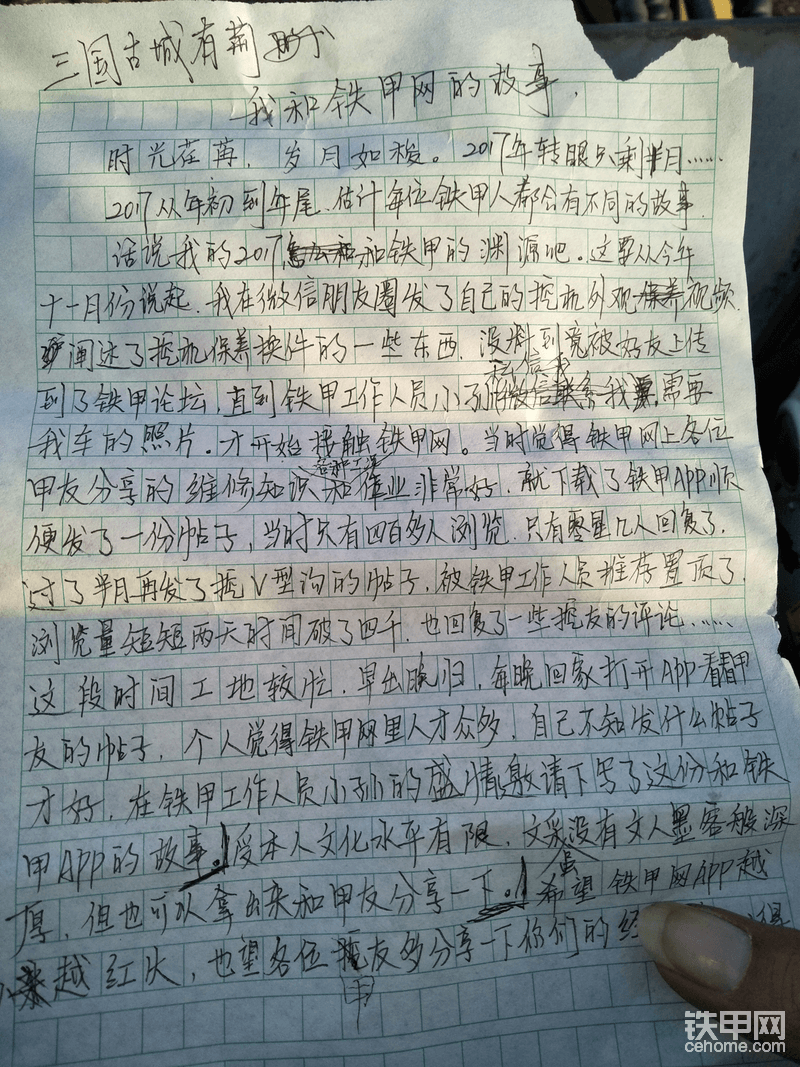 三国古城有荆
我和铁甲网的故事.
时光荏苒,岁月如梭。2017年转眼只剩半月……
2017从年初到年尾,估计每位铁甲人都会有不同的故事.
话说我的2017和铁甲的渊源吧。这要从今年
十一月份说起.我在微信朋友圈发了自己的挖机外观保养视频.
阐述了挖机保养换件的一些东西.没料到竟被好友上传
私信我
到了铁甲论坛,直到铁甲工作人员小孙需要
我车的照片.才开始接触铁甲网。当时觉得铁甲网上各位
甲友分享的维修知识和作业非常好.就下载了铁甲APP顺
便发了一份帖子,当时只有四百多人浏览.只有零星几人回复了.
过了半月再发了挖V型沟的帖子.被铁甲工作人员推荐置顶了.
浏览量短短两天时间破了四千.也回复了一些挖友的评论……
这段时间工地较忙.早出晚归,每晚回家打开APP看看甲
友的帖子.个人觉得铁甲网里人才众多.自己不知发什么帖子
才好.在铁甲工作人员小孙的盛情邀请下写了这份和铁
甲APP的故事。受本人文化水平有限.文采没有文人墨客般深
厚,但也可以拿出来和甲友分享一下。希望铁甲网APP越
来越红火,也望各位甲友多分享一下你们的经
铁甲网
cehome.com